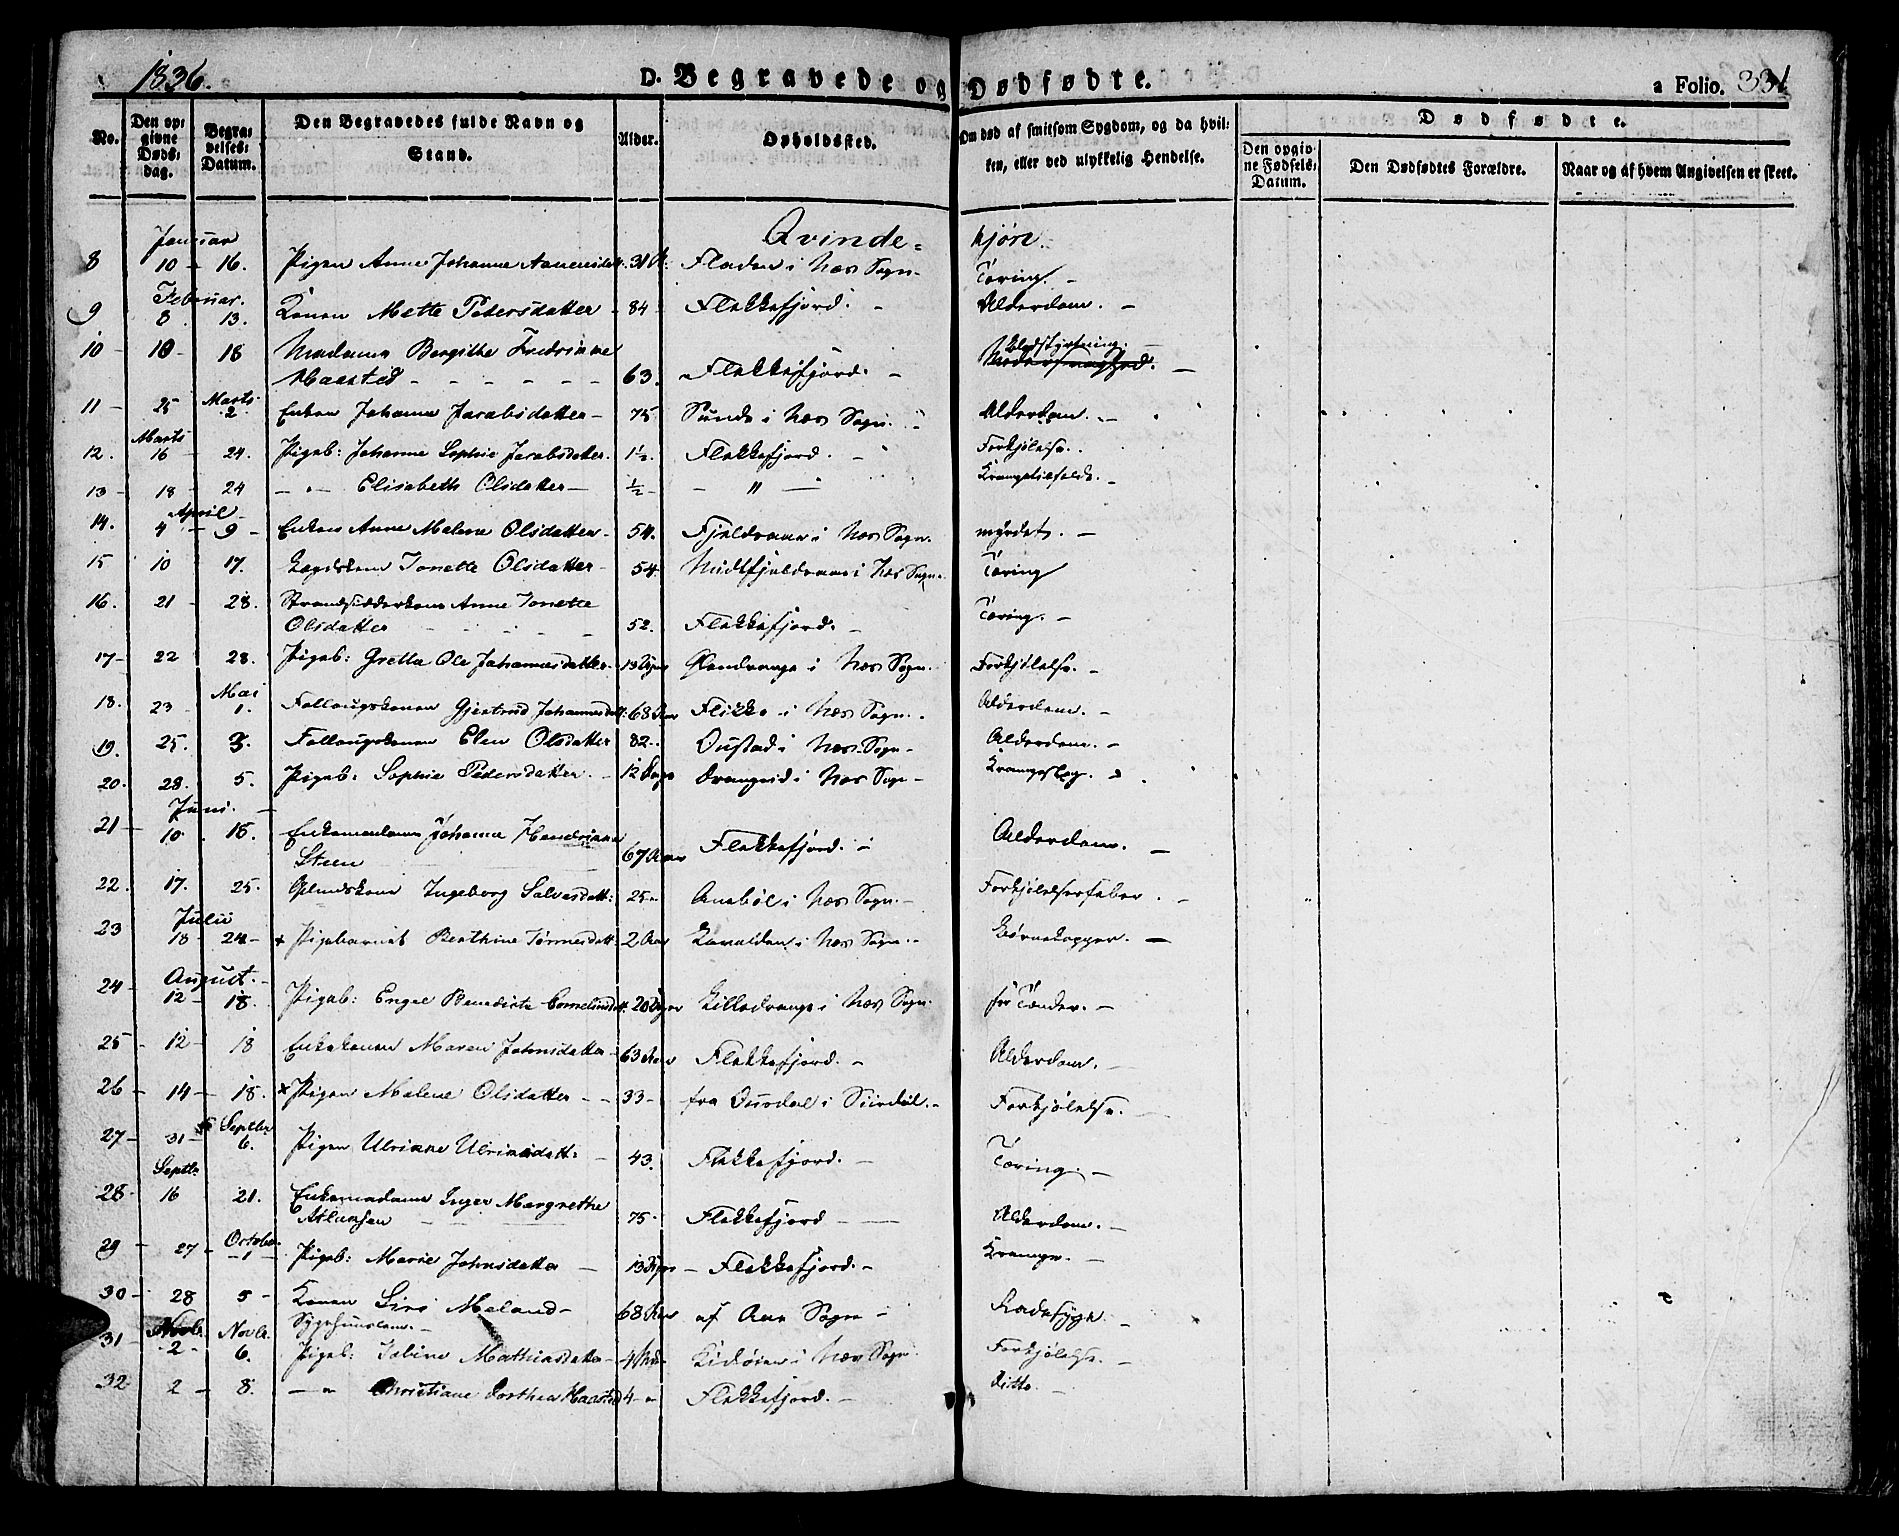 1836.
D. Begravede og Dødfødte.
a Folio. 331
No.
Den opgivne Døds-dag.
Begravelses-Datum.
Den Begravedes fulde Navn og Stand.
Alder.
Opholdssted.
Om død af smitsom Sygdom, og da hvilken, eller ved ulykkelig Hendelse.
Dødfødte.
Den opgivne Fødsels-Datum.
Den Dødfødtes Forældre.
Naar og af hvem Angivelsen er skeet.
Qvinde-kjøn.
Januar
8 10 - 16. Pigen Anne Johanne 31 Fladen i Næs Sogn - Tæring. -
Februar.
9 8. 13. Konen Mette Petersdatter - 84 - Flekkefjord. - Alderdom. -
10 - 10 - 18 Madame Bergithe Fredrikke Blodstyrtning. -
Haasted - - - - - - 63. Flekkefjord. -
Marts
11 - 25 2. Enken Johanne Jacobsdatter - 75 Sunde i Næs Sogn. Alderdom. -
Marts
12. 16 - 24. Pigeb: Johanne Sophie Jacobsdatter. 1½. Flekkefjord. - Forkjølelse.
13 - 18 - 24 - " - Elisabeth Olsdatter - ½ - - " - Krampetilfælde. -
April
14. 4 - 9 - Enken Anne Malene Olsdatter - 54. Fjeldvaae i Næs Sogn. myrdet. -
15 10 17. Tonette Olsdatter - 54 Midtfjeldvaae i Næs Sogn. Tæring
16. 21 - 28. Strandsidderkone Anne Tonette
Olsdatter 52. Flekkefjord. - Tæring. -
17 - 22 28. Pigeb: Gretha Ole Johannesdatter. 13 Uger i Næs Sogn. Forkjølelse. -
Mai
18. 23 1. Follougskonen Gjertrud Johannesdatt: 68 Aar Flikke i Næs Sogn. Alderdom. -
19. 25. 3. Follougskonen Elen Olsdatter 82. Oustad i Næs Sogn - Alderdom. -
20. 28. 5. Pigeb: Sophie Pedersdatter. - 12 Dage Drangeid i Næs Sogn -
Juni. -
21 - 10 . 15. Enkemadame Johanne Hendrikke
Steen 67 Aar Flekkefjord. - Alderdom. -
22. 17. 25. Ingeborg Salvesdatt: 25 - Anabøl i Næs Sogn. - Forkjølelsesfeber. -
Julii
23 18 - 24 - x Pigebarnet Berthine Tørresdatt: 2 Aar i Næs Sogn. Børnekopper. -
August. -
24 - 12 - 18. Pigeb: Engel Benedicte Corneliusdatt. 20 Uger i Næs Sogn. for Tænder. -
25 - 12 - 18 Enkekonen Maren Johnsdatter - 63 Aar Flekkefjord. - Alderdom. -
26 - 14 - 18. x Pigen Malene Olsdatter - - 33 - fra Ousdal i Siredal. - Forkjølelse. -
Septbr
27 - 31 - 6. Pigen Ulrikke Ulriksdatt: - 43. Flekkefjord. - Tæring. -
Septbr
28 - 16 21. Enkemadame Inger Margrethe
Atlungsen - - 75 - Flekkefjord - - Alderdom. -
October
29 - 27 - 1 - Pigeb: Marie Johnsdatter - 13 Uger - Flekkefjord. - Krampe. -
30 - 28 5 - Konen Siri Meland - 68 Aar af Aae Sogn - Radesyge. -
Novbr. Novbr
31 - 2 - 6. Pigeb: Tobine Mathiasdatter - 4 i Næs Sogn. Forkjølelse. -
32 2 - 8. - " Christiane Dorthea Haasted 4 - " Flekkefjord. - ditto -